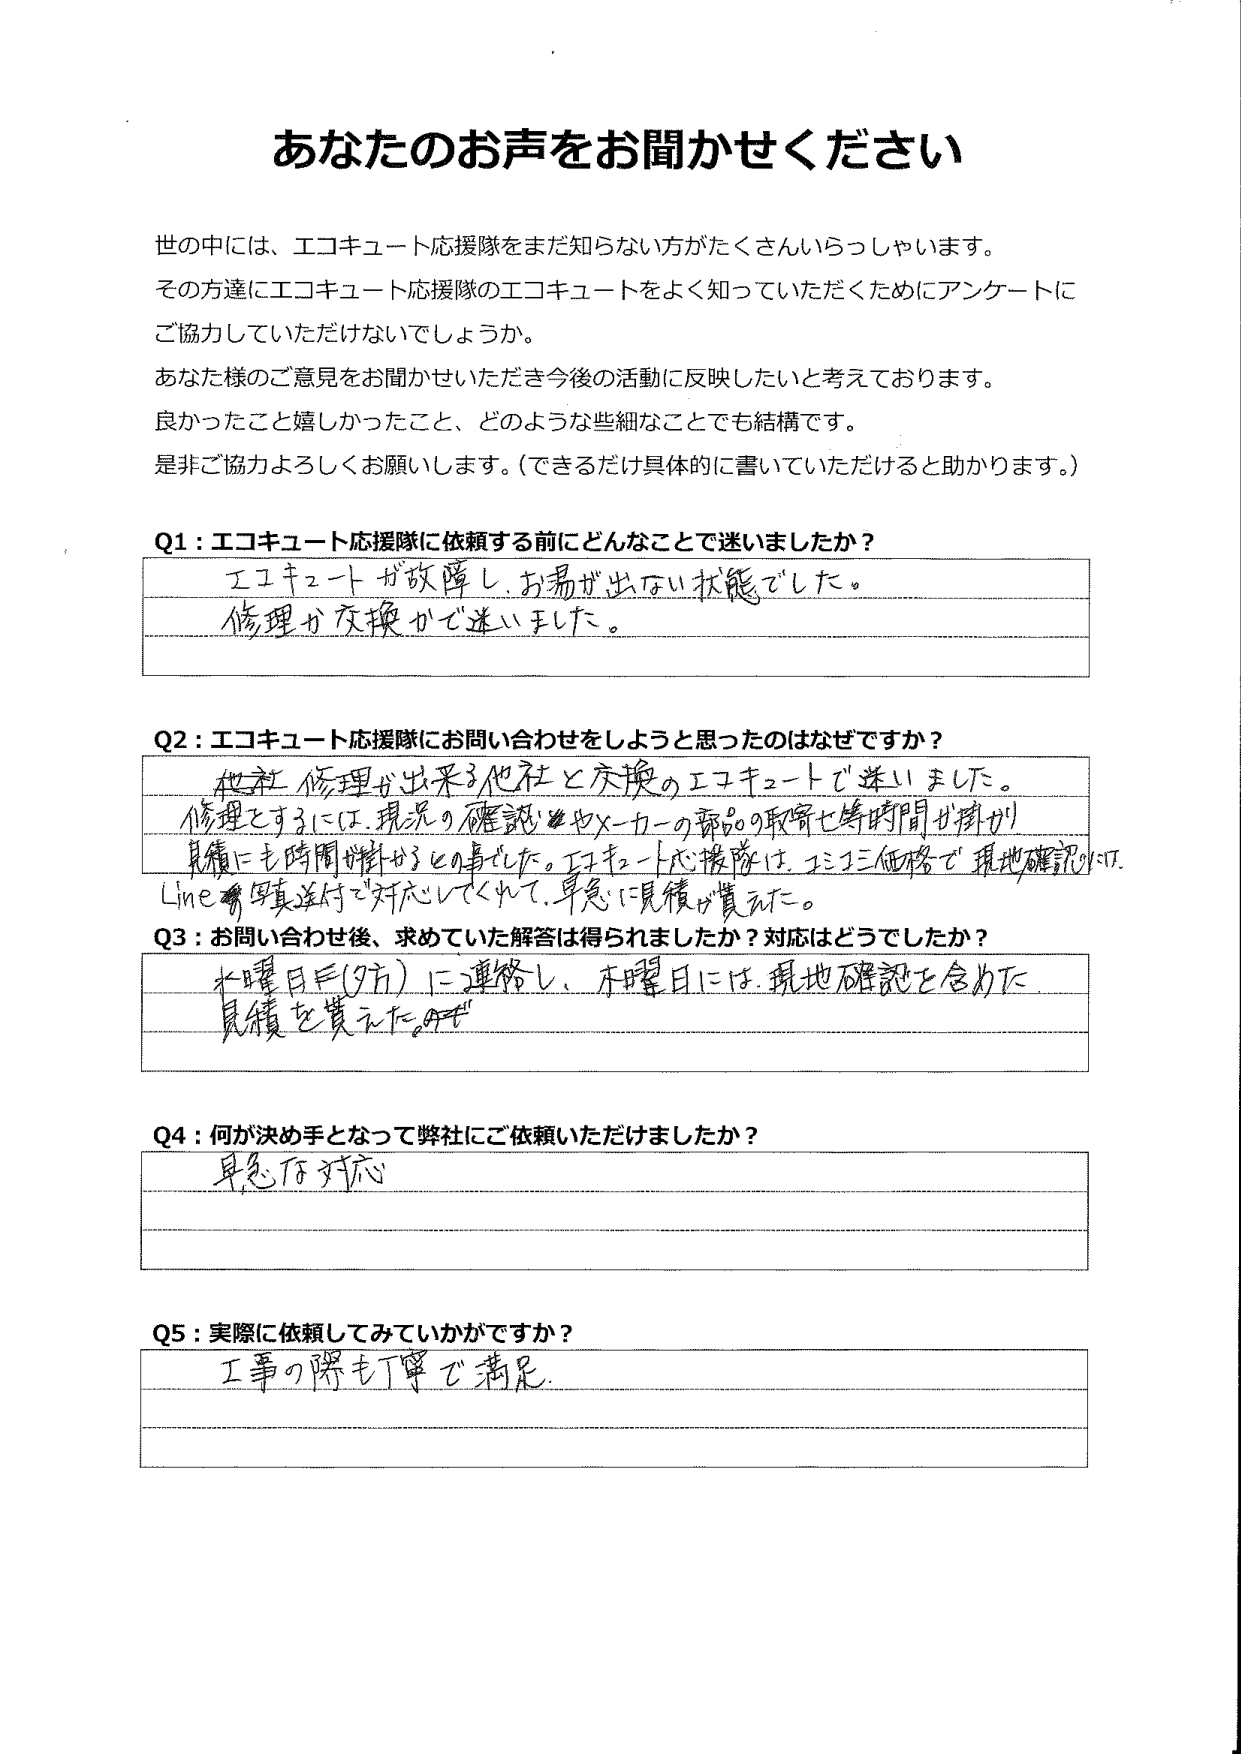 あなたのお声をお聞かせください
世の中には、エコキュート応援隊をまだ知らない方がたくさんいらっしゃいます。
その方達にエコキュート応援隊のエコキュートをよく知っていただくためにアンケートに
ご協力していただけないでしょうか。
あなた様のご意見をお聞かせいただき今後の活動に反映したいと考えております。
良かったこと嬉しかったこと、どのような些細なことでも結構です。
是非ご協力よろしくお願いします。（できるだけ具体的に書いていただけると助かります。）
Q1：エコキュート応援隊に依頼する前にどんなことで迷いましたか？
エコキュートが故障し、お湯が出ない状態でした。
修理か交換かで迷いました。
Q2：エコキュート応援隊にお問い合わせをしようと思ったのはなぜですか？
他社 修理が出来る他社と交換のエコキュートで迷いました。
修理とするには、現況の確認やメーカーの部品の取寄せ等時間が掛かり
見積にも時間が掛かるとの事でした。エコキュート応援隊は、コミコミ価格で現地確認には、
Line写真送付で対応してくれて、早急に見積が貰えた。
Q3：お問い合わせ後、求めていた解答は得られましたか？対応はどうでしたか？
水曜日(夕方)に連絡し、木曜日には、現地確認を含めた
見積を貰えた。
Q4：何が決め手となって弊社にご依頼いただけましたか？
早急な対応
Q5：実際に依頼してみていかがですか？
工事の際も丁寧で満足.